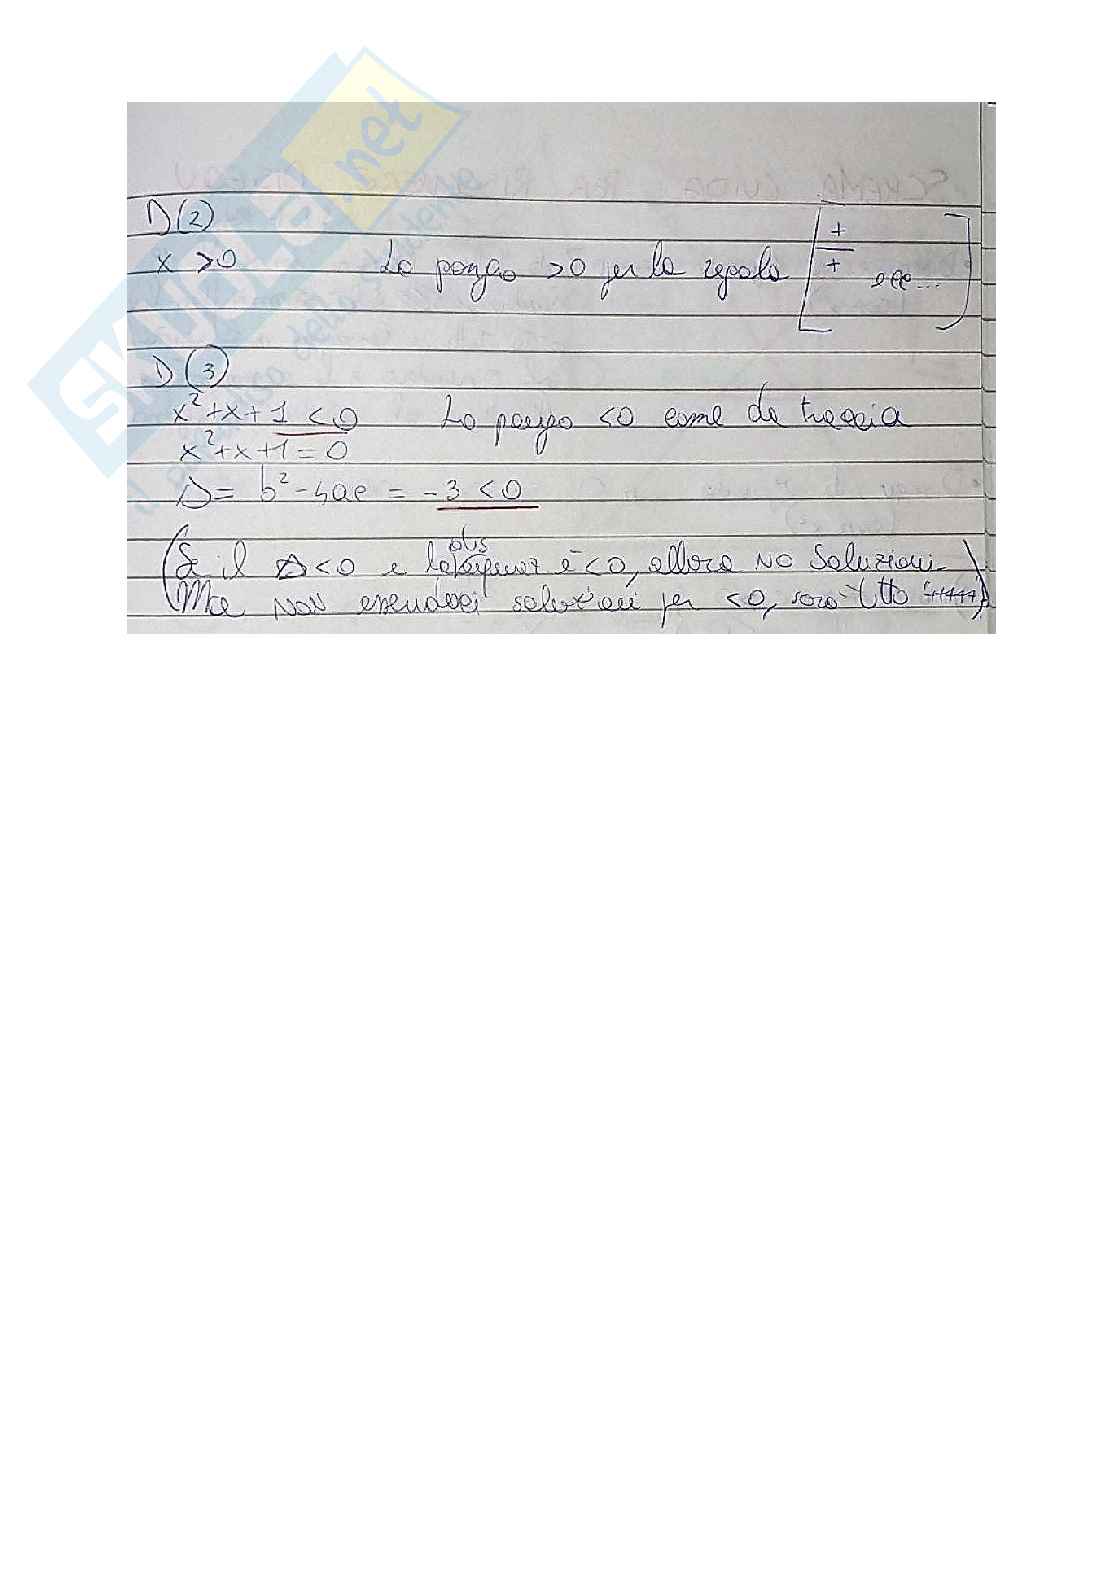 SKUOLA.net
D(2)
x > 0 Lo pongo > 0 per la regola [ + / + ecc... ]
D(3)
x²+x+1 < 0 Lo pongo < 0 come da traccia
x²+x+1 = 0
Δ = b² - 4ac = -3 < 0
(Se il Δ < 0 e la diseq è < 0, allora NO Soluzioni.
Ma NON essendoci soluzioni per < 0, sarà tutto ++++)